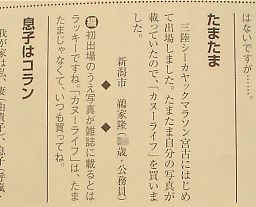 はないですが……。
たまたま
三陸シーカヤックマラソン宮古にはじめ
て出場しました。たまたま自分の写真が
載っていたので、「カヌーライフ」を買いま
した。
新潟市 鶴家隆（歳・公務員）
◆ ◆
初出場のうえ写真が雑誌に載るとは
ラッキーですね。「カヌーライフ」は、たま
たまじゃなくて、いつも買ってね。
息子はコラン